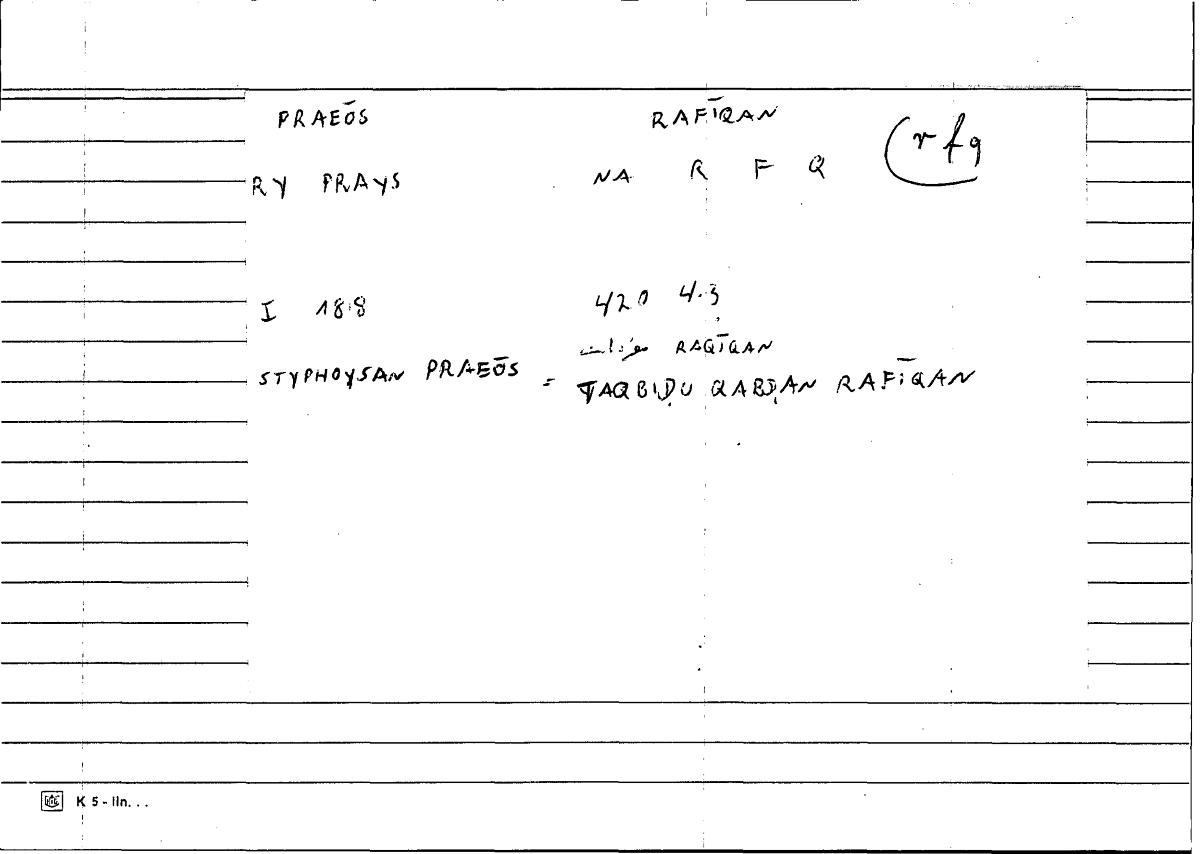 PRAEŌS RAFĪQAN
(rfq
RY PRAYS NA R F Q
I 18.8 420 4.3
مفردات RAQĪQAN
STYPHOYSAN PRAEŌS = TAQBIḌU QABḌAN RAFĪQAN
K 5 - lln. . .